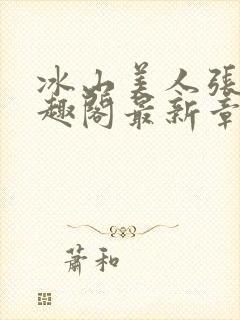 冰山美人張
趣閣最新章
蕭和